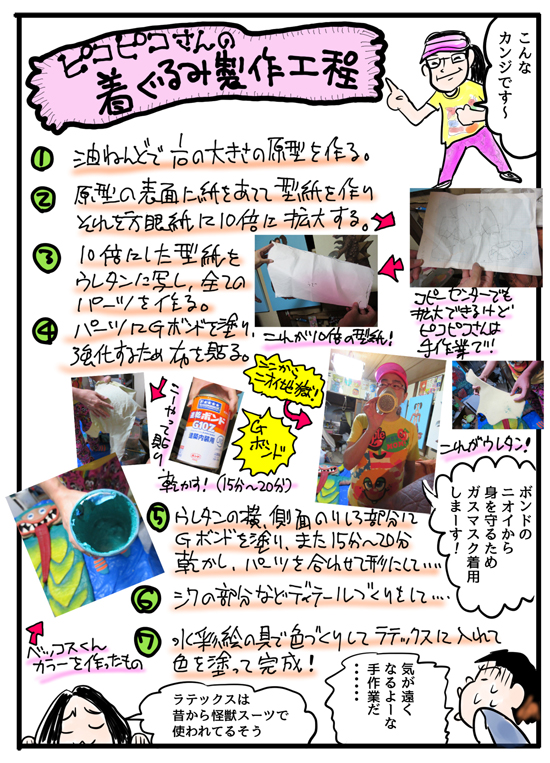 ピコピコさんの
着ぐるみ製作工程
こんな
カンジです〜
① 油ねんどで
の大きさの原型を作る。
② 原型の表面に紙をあてて型紙を作り
それを方眼紙に10倍に拡大する。
③ 10倍にした型紙を
ウレタンに写し、全ての
パーツを作る。
これが10倍の型紙!
コピーセンターでも
拡大できるけど
ピコピコさんは
手作業で!!
④ パーツにGボンドを塗り、
強化するため布を貼る。
こーやって貼り
乾かす!(15分〜20分)
ボンド
G10Z
Gボンド
ここから
ニオイ地獄!
これがウレタン!
ボンドの
ニオイから
身を守るため
ガスマスク着用
しまーす!
⑤ ウレタンの横、側面ののりしろ部分に
Gボンドを塗り、また15分〜20分
乾かし、パーツを合わせて形にして‥‥
⑥ シワの部分などディテールづくりをして‥‥
⑦ 水彩絵の具で色づくりしてラテックスに入れて
色を塗って完成!
ベッコスくん
カラーを作ったもの
ラテックスは
昔から怪獣スーツで
使われてるそう
気が遠く
なるよーな
手作業だ